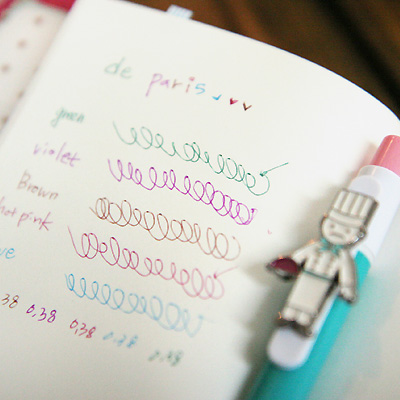 de paris
green
violet
Brown
hot pink
0,38 0,38 0,38 0,38